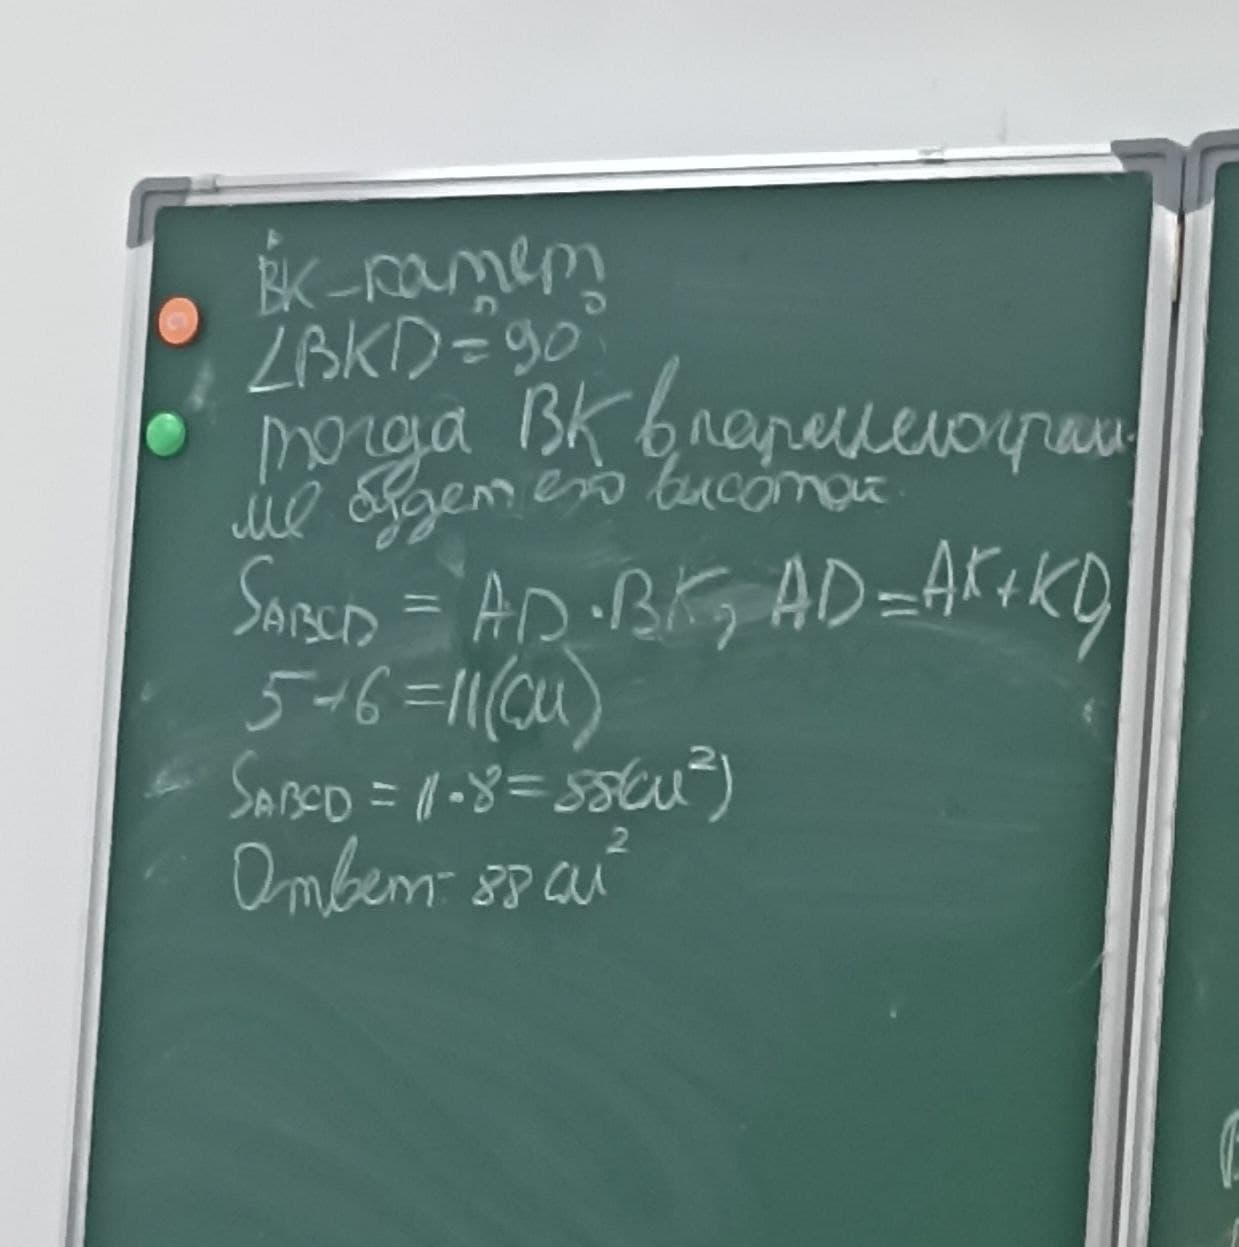 BK-катет
∠BKD = 90°
тогда BK в параллелограм-
ме будет его высотой.
SABCD = AD · BK, AD = AK + KD,
5 + 6 = 11(см)
SABCD = 11 · 8 = 88(см²)
Ответ: 88 см²